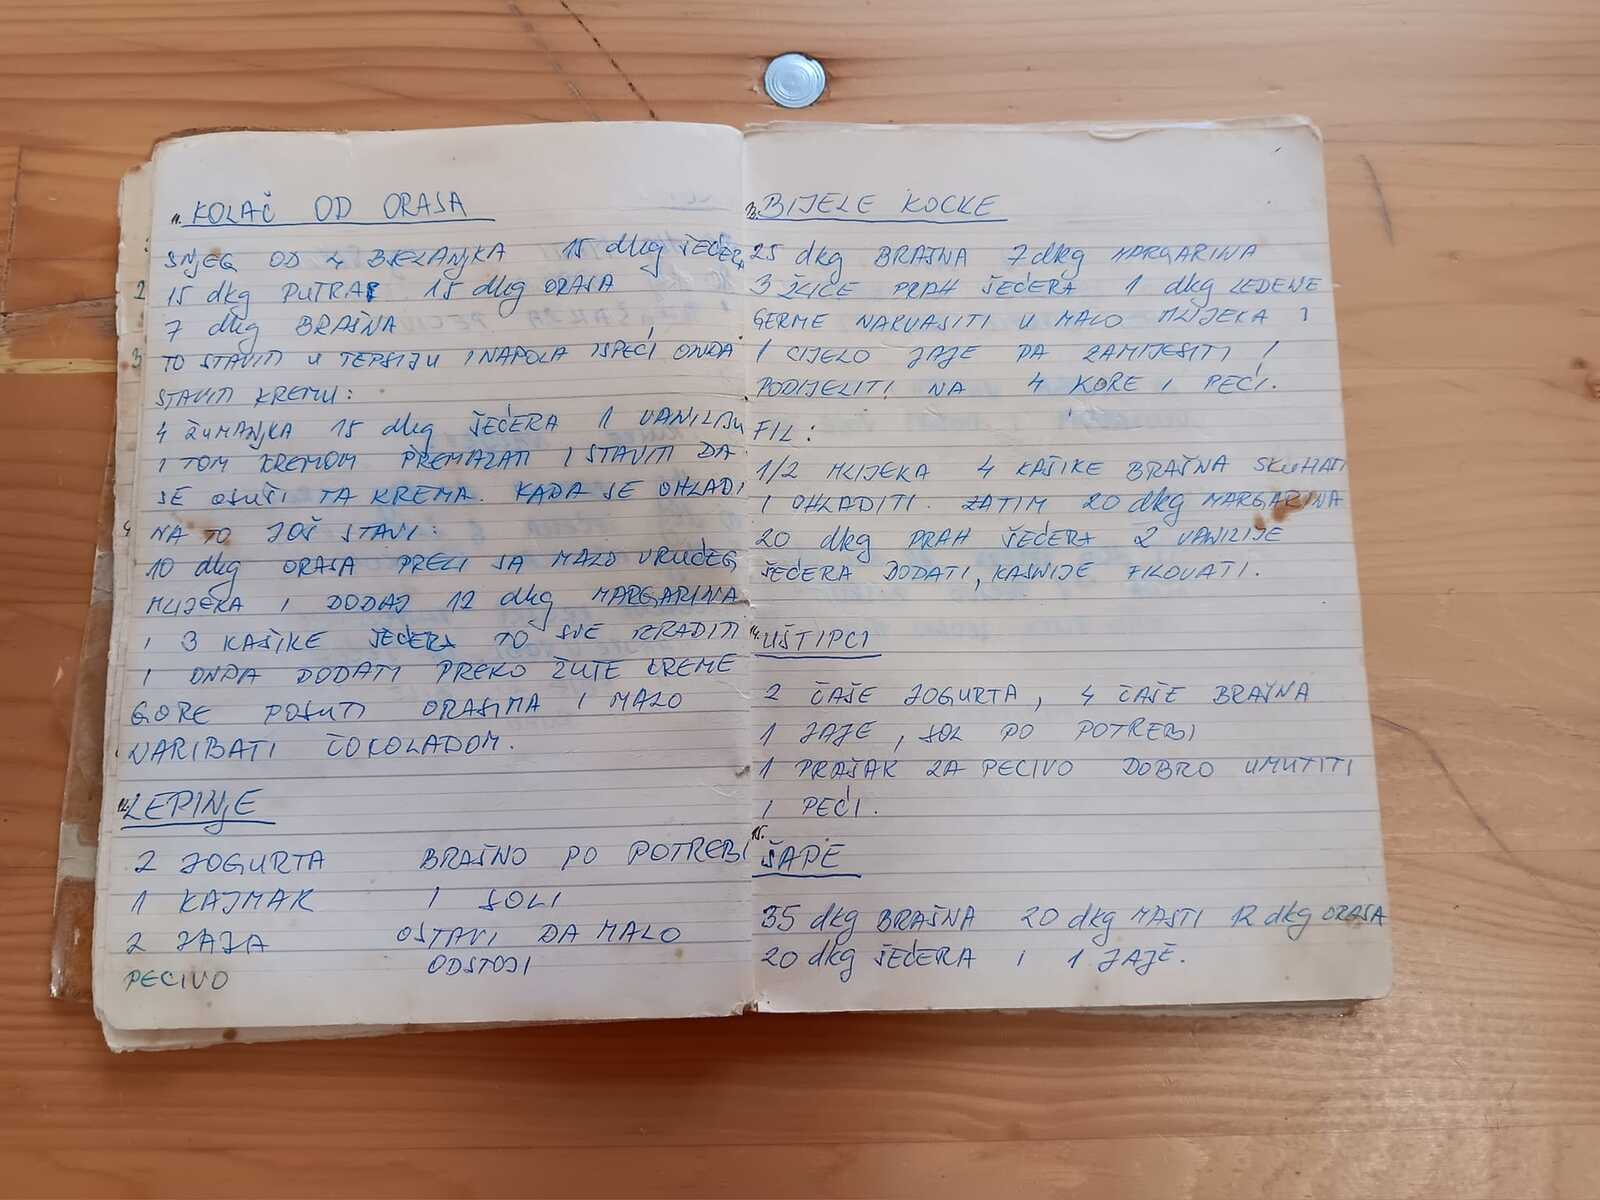 11. KOLAČ OD ORASA
SNJEG OD 4 BJELANJKA 15 dkg ŠEĆERA
15 dkg PUTRA 15 dkg ORASA
7 dkg BRAŠNA
TO STAVITI U TEPSIJU I NAPOLA ISPEĆI ONDA
STAVITI KREMU:
4 ŽUMANJKA 15 dkg ŠEĆERA 1 VANILIJU
I TOM KREMOM PREMAZATI I STAVITI DA
SE OSUŠI TA KREMA. KADA SE OHLADI
NA TO JOŠ STAVI:
10 dkg ORASA PRELI SA MALO VRUĆEG
MLIJEKA I DODAJ 12 dkg MARGARINA
I 3 KAŠIKE ŠEĆERA TO SVE IZRADITI
I ONDA DODATI PREKO ŽUTE KREME
GORE POSUTI ORASIMA I MALO
NARIBATI ČOKOLADOM.
12. LEPINJE
2 JOGURTA BRAŠNO PO POTREBI
1 KAJMAK I SOLI
2 JAJA OSTAVI DA MALO
PECIVO ODSTOJI
13. BIJELE KOCKE
25 dkg BRAŠNA 7 dkg MARGARINA
3 ŽLICE PRAH ŠEĆERA 1 dkg LEDENE
GERME NAKVASITI U MALO MLIJEKA I
1 CIJELO JAJE PA ZAMIJESITI I
PODIJELITI NA 4 KORE I PEĆI.
FIL:
1/2 MLIJEKA 4 KAŠIKE BRAŠNA SKUHATI
I OHLADITI. ZATIM 20 dkg MARGARINA
20 dkg PRAH ŠEĆERA 2 VANILIJE
ŠEĆERA DODATI, KASNIJE FILOVATI.
14. UŠTIPCI
2 ČAŠE JOGURTA, 4 ČAŠE BRAŠNA
1 JAJE, SOL PO POTREBI
1 PRAŠAK ZA PECIVO DOBRO UMUTITI
I PEĆI.
15. ŠAPE
35 dkg BRAŠNA 20 dkg MASTI 12 dkg ORASA
20 dkg ŠEĆERA I 1 JAJE.